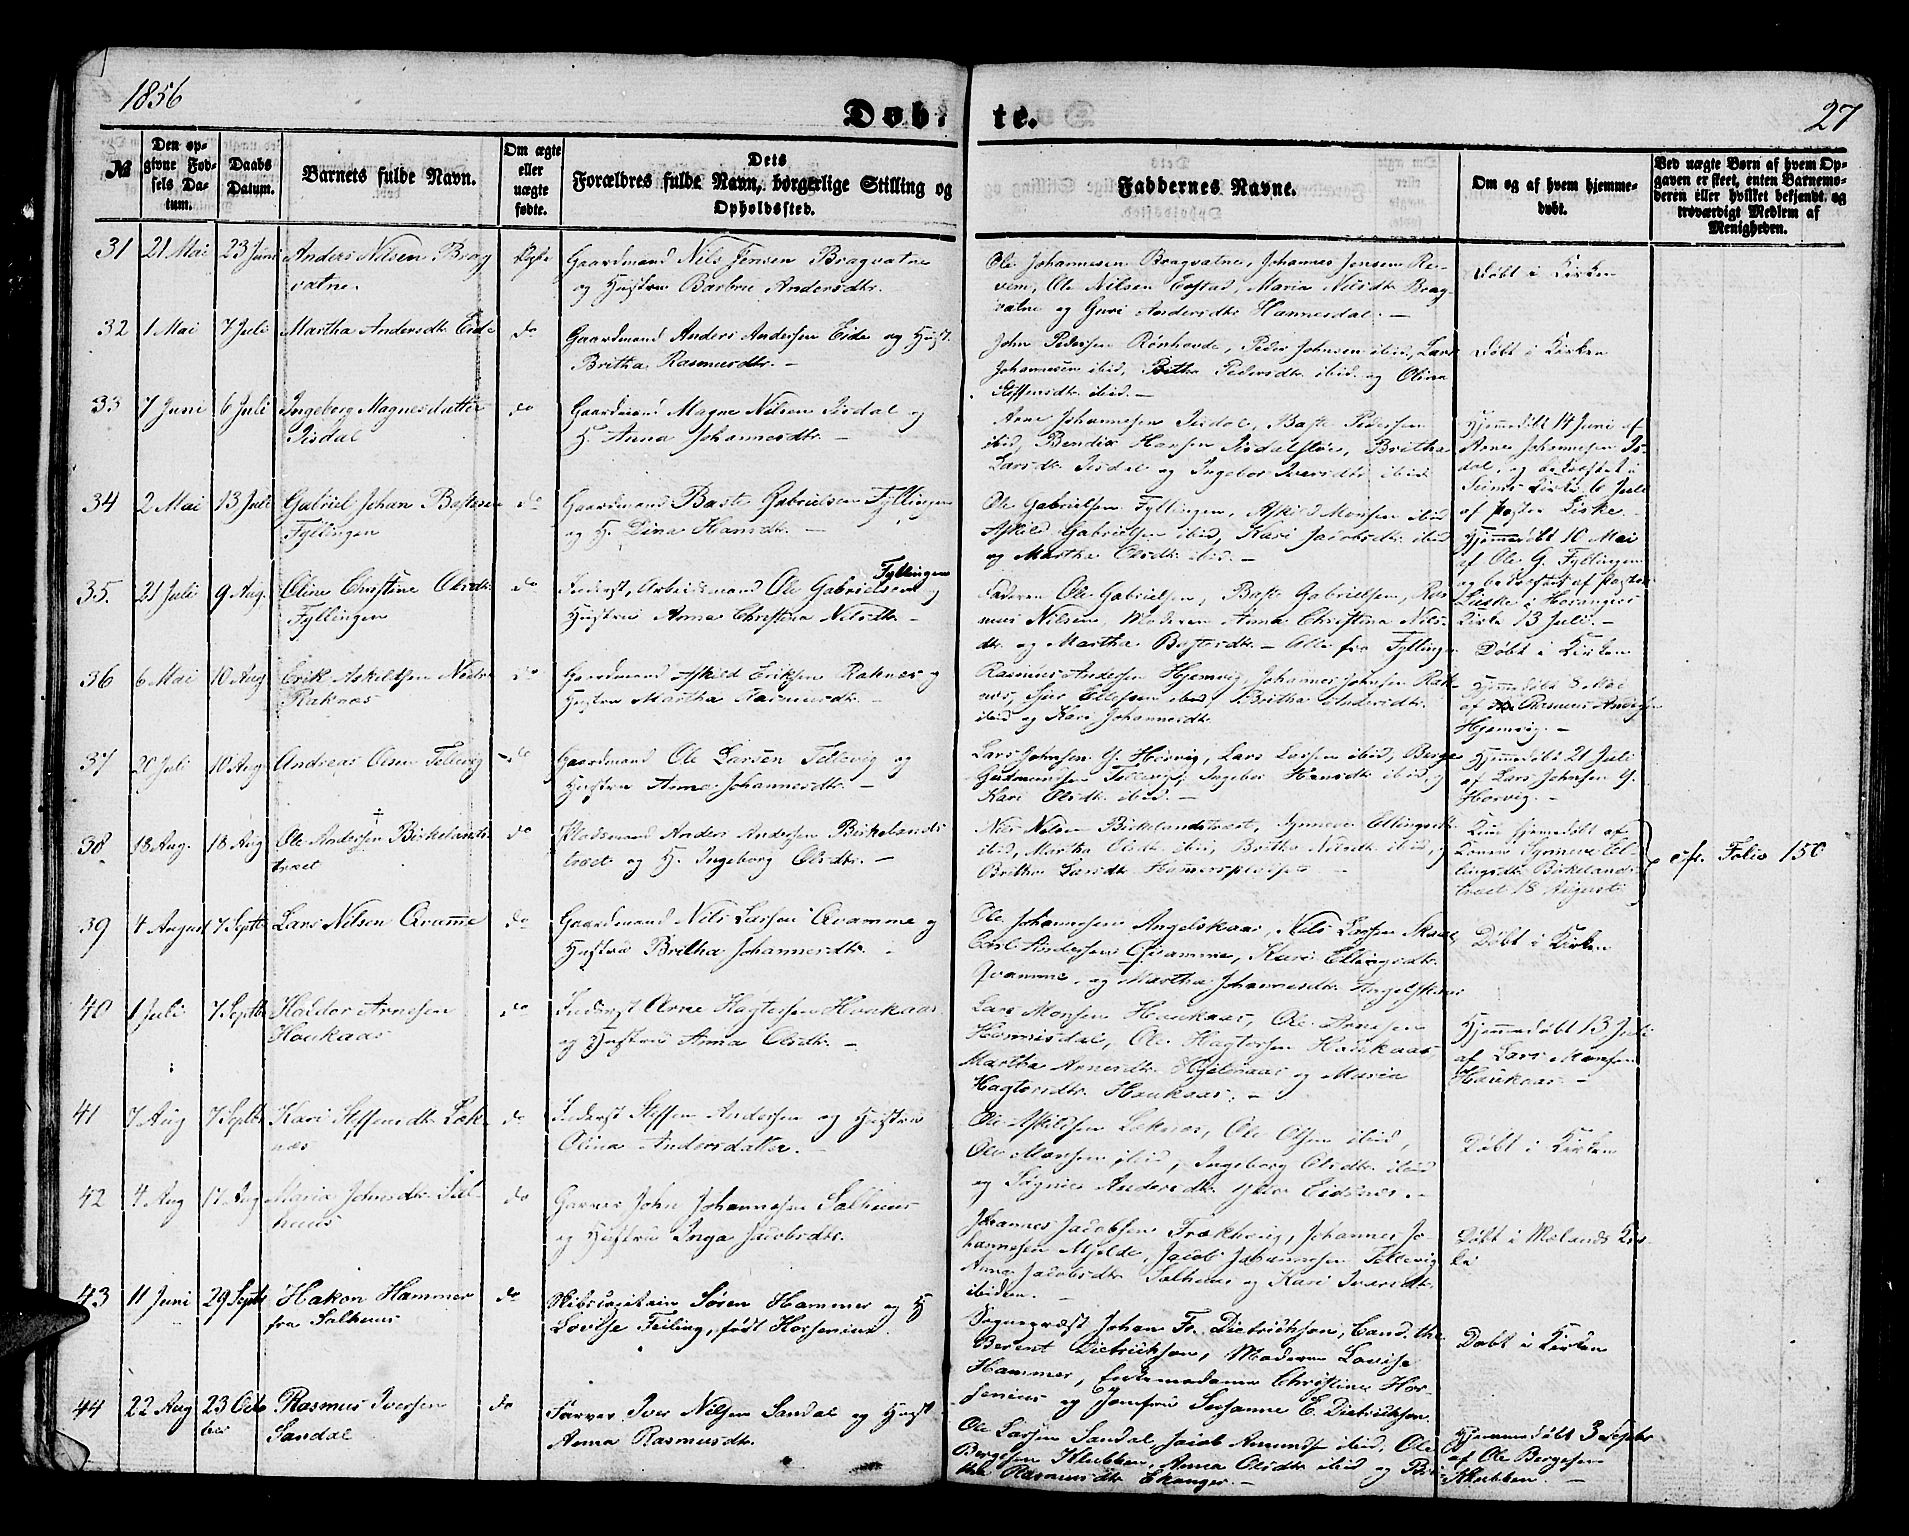 1856
Døbte.
27
№
Den opgivne Fødsels Datum.
Daabs Datum.
Barnets fulde Navn.
Om ægte eller uægte fødte.
Dets Forældres fulde Navn, borgerlige Stilling og Opholdssted.
Faddernes Navne.
Om og af hvem hjemmedøbt.
Ved uægte Børn af hvem Opgaven er skeet, enten Barnemoderen eller hvilket bekjendt og troværdigt Medlem af Menigheden.
31 21 Mai 23 Juni Anders Nilsen Brag
vatne.
Ægte
Gaardmand Nils Jensen Bragvatne
og Hustru Barbru Andersdtr.
Ole Johannesen Bragvatne, Johannes Jensen Re-
vem, Ole Nilsen, Maria Nilsdtr Brag
vatne og Guri Andersdtr Hannesdal. —
Døbt i Kirken
32 1 Mai 7 Juli Martha Andersdtr Eide
do
Gaardmand Anders Anderssen Eide og Hust.
Britha Rasmusdtr. —
John Pedersen Rønhovde, Peder Johnsen ibid, Lars
Johannesen ibid, Britha Pedersdtr ibid og Olina
Steffensdtr ibid. —
Døbt i Kirken
33 7 Juni 6 Juli Ingeborg Magnesdatter
Isdal
do
Gaardmand Magne Nilsen Isdal og
H. Anna Johannesdtr. —
Arne Johannesen Isdal, Baste Pedersen
ibid, Bendix Hansen Isdalstøe, Britha
Larsdtr Isdal og Ingebor Iversdtr ibid
Hjemmedøbt 14 Juni af
Arne Johannesen Is-
dal, og bekræftet i
Seims Kirke 6 Juli
af Pastor Liske. —
34 2 Mai 13 Juli Gabriel Johan Bastesen
Fyllingen
do
Gaardmand Baste Gabrielsen Fyllingen
og H. Dina Hansdtr. —
Ole Gabrielsen Fyllingen, Askild Monsen ibid
Askild Gabrielsen ibid, Kari Jacobsdtr ibid
og Martha Olsdtr ibid. —
Hjemmedøbt 10 Mai
af Ole G. Fyllingen
og bekræftet af Pastor
Liske i Hosangers
Kirke 13 Juli. —
35. 21 Juli 9 Aug. Oline Christine Olsdtr
Fyllingen
do
Inderst, Arbeidsmand Ole Gabrielsen Fyllingen og
Hustru Anna Christina Nilsdtr. —
Faderen Ole Gabrielsen, Baste Gabrielsen, Ras
mus Nilsen, Moderen Anna Christina Nils
dtr. og Martha Bastesdtr. — Alle fra Fylling
Døbt i Kirken
36 6 Mai 10 Aug Erik Askildsen Nedre
Raknæs
do
Gaardmand Askild Eriksen Raknæs og
Hustru Martha Rasmusdtr. —
Rasmus Andersen Hjemvig, Johannes Johnsen Rak-
nes, Sjur Ellefsen ibid, Britha Andersdtr.
ibid og Kari Johannesdtr
Hjemmedøbt 8 Mai
af Rasmus Anders
Hjemvig. —
37 20 Juli 10 Aug Andreas Olsen Tellevig
do
Gaardmand Ole Larsen Tellevig og
Hustru Anna Johannesdtr. —
Lars Johnsen Y. Horvig, Lars Larsen ibid, Berge
Gudmundsen Tellevig, Ingebor Hansdtr ibid, og
Kari Olsdtr. ibid. —
Hjemmedøbt 21 Juli
af Lars Johnsen Y.
Horvig. —
38 18 Aug. 18 Aug ‡ Ole Andersen Birkelands
træet
do
Pladsmand Anders Andersen Birkelands
træet og H. Ingeborg Olsdtr. —
Nils Nilsen Birkelandstræet, Synneve Ellingsdtr
ibid, Martha Olsdtr ibid, Britha Nilsdtr ibid, og
Britha Larsdtr
Kun hjemmedøbt af
Konen Synneve El-
lingsdtr Birkelands
træet 18 Augusti
cfr. Folio 150
39 4 August 7 Septbr Lars Nilsen Qvamme
do
Gaardmand Nils Larsen Qvamme og
Hustru Britha Johannesdtr.
Ole Johannesen Angelskaar, Nils Larsen
Carl Andersen Qvamme, Kari Ellingsdtr.
Qvamme, og Martha Johannesdtr Angelskaar
Døbt i Kirken
40 1 Juli 7 Septbr Haldor Arnesen
Houkaas
do
Inderst Arne Hagtorsen Houkaas
og Hustru Anna Olsdtr. —
Lars Monsen Haukaas, Ole Arnesen
Hannisdal, Ole Hagtorsen Haukaas
Martha Arnesdtr. og Maria
Hagtorsdtr. Haukaas. —
Hjemmedøbt 13 Juli
af Lars Monsen
Haukaas. —
41 7 Aug 7 Septbr Kari Steffensdtr Løk
næs
do
Inderst Steffen Andersen og Hustru
Olina Andersdatter. —
Ole Askildsen Løknæs, Ole Olsen ibid,
Ole Monsen ibid, Ingeborg Olsdtr. ibid
og Andersdtr Ytre Eidsnæs. —
Døbt i Kirken
42 4 Aug 17 Aug Maria Johnsdtr. Sal-
huus
do
Garver John Johannesen Salhuus
og Hustru Inga Jacobsdtr.
Johannes Jacobsen, Johannes Jo-
hannesen Mjelde, Jacob Johannesen Tellevig
Anna Jacobsdtr. Salhuus og Kari Iversdtr.
ibidem. —
Døbt i Mælands Kir-
ke
43 11 Juni 29 Septbr Hakon Hammer
fra Salhuus
do
Skibscapitain Søren Hammer og H
Lovise Feiling, født Horsenius.
Sognepræst Johan Fr. Dietrichson, Cand. the
Berent Dietrichson, Moderen Lovise
Hammer, Enkemadame Christine Hor-
senius og Jomfru Susanne E. Dietrichson.
Døbt i Kirken
44 22 Aug 23 Octo
ber
Rasmus Iversen
Sandal
do
Farver Iver Nilsen Sandal og Hust
Anna Rasmusdtr.
Ole Larsen Sandal, Jacob Amunds ibid, Ole
Bergesen Klubben, Anna Olsdtr ibid og Bri
tha Rasmusdtr Ekanger. —
Hjemmedøbt 3 Septbr
af Ole Bergesen
Klubben. —